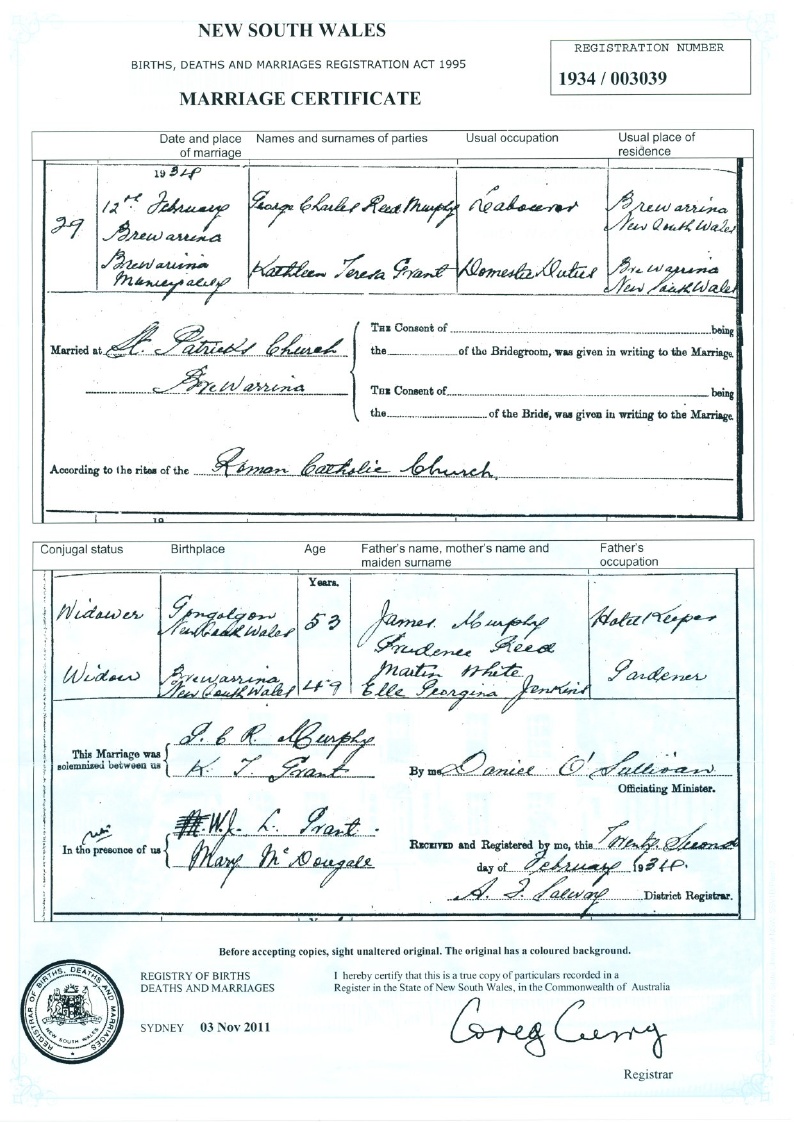 NEW SOUTH WALES
BIRTHS, DEATHS AND MARRIAGES REGISTRATION ACT 1995
MARRIAGE CERTIFICATE
REGISTRATION NUMBER
1934 / 003039
Date and place of marriage
Names and surnames of parties
Usual occupation
Usual place of residence
1934
29
12th February
Brewarrina
Brewarrina
Municipality
George Charles Reed Murphy
Labourer
Brewarrina
New South Wales
Kathleen Teresa Grant
Domestic Duties
Brewarrina
New South Wales
Married at St. Patrick's Church
Brewarrina
THE Consent of being
the of the Bridegroom, was given in writing to the Marriage.
THE Consent of being
the of the Bride, was given in writing to the Marriage.
According to the rites of the Roman Catholic Church
19
Conjugal status
Birthplace
Age
Father's name, mother's name and maiden surname
Father's occupation
Years.
Widower
Gongolgon
New South Wales
53
James Murphy
Prudence Reed
Hotel Keeper
Widow
Brewarrina
New South Wales
49
Martin White
Elle Georgina Jenkins
Gardener
This Marriage was
solemnized between us
G. C. R. Murphy
K. T. Grant
By me Daniel O'Sullivan
Officiating Minister.
In the presence of us
W. J. L. Grant.
Mary McDougale
RECEIVED and Registered by me, this Twenty Second
day of February 1934.
A. J. Salway District Registrar.
Before accepting copies, sight unaltered original. The original has a coloured background.
REGISTRAR OF BIRTHS, DEATHS AND MARRIAGES
NEW SOUTH WALES
REGISTRY OF BIRTHS
DEATHS AND MARRIAGES
SYDNEY 03 Nov 2011
I hereby certify that this is a true copy of particulars recorded in a
Register in the State of New South Wales, in the Commonwealth of Australia
Greg Curry
Registrar